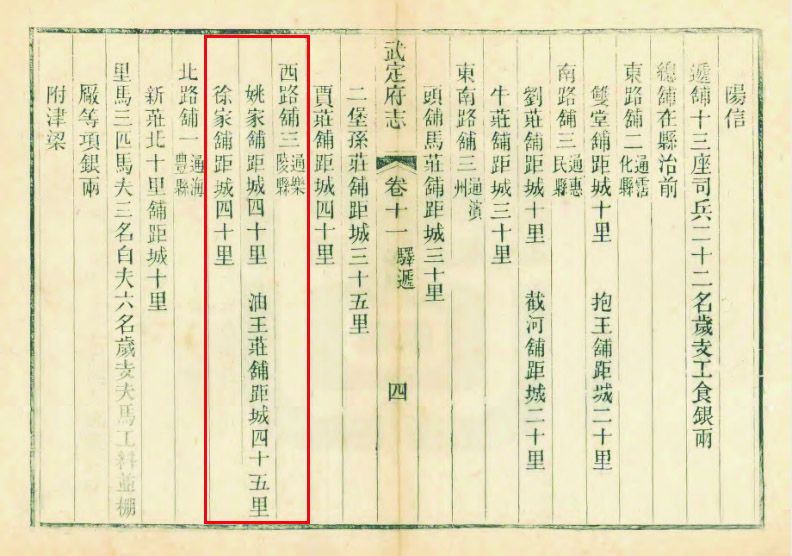 陽信
遞舖十三座司兵二十二名歲支工食銀兩
總舖在縣治前
東路舖二通霑化縣
雙堂舖距城十里 抱王舖距城二十里
南路舖三通惠民縣
劉莊舖距城十里 截河舖距城二十里
牛莊舖距城三十里
東南路舖三通濱州
頭舖馬莊舖距城三十里
武定府志 卷十一 驛遞 四
二堡孫莊舖距城三十五里
賈莊舖距城四十里
西路舖三通樂陵縣
姚家舖距城四十里 油王莊舖距城四十五里
徐家舖距城四十里
北路舖一通海豐縣
新莊北十里舖距城十里
里馬三匹馬夫三名白夫六名歲支夫馬工料並棚
厰等項銀兩
附津梁